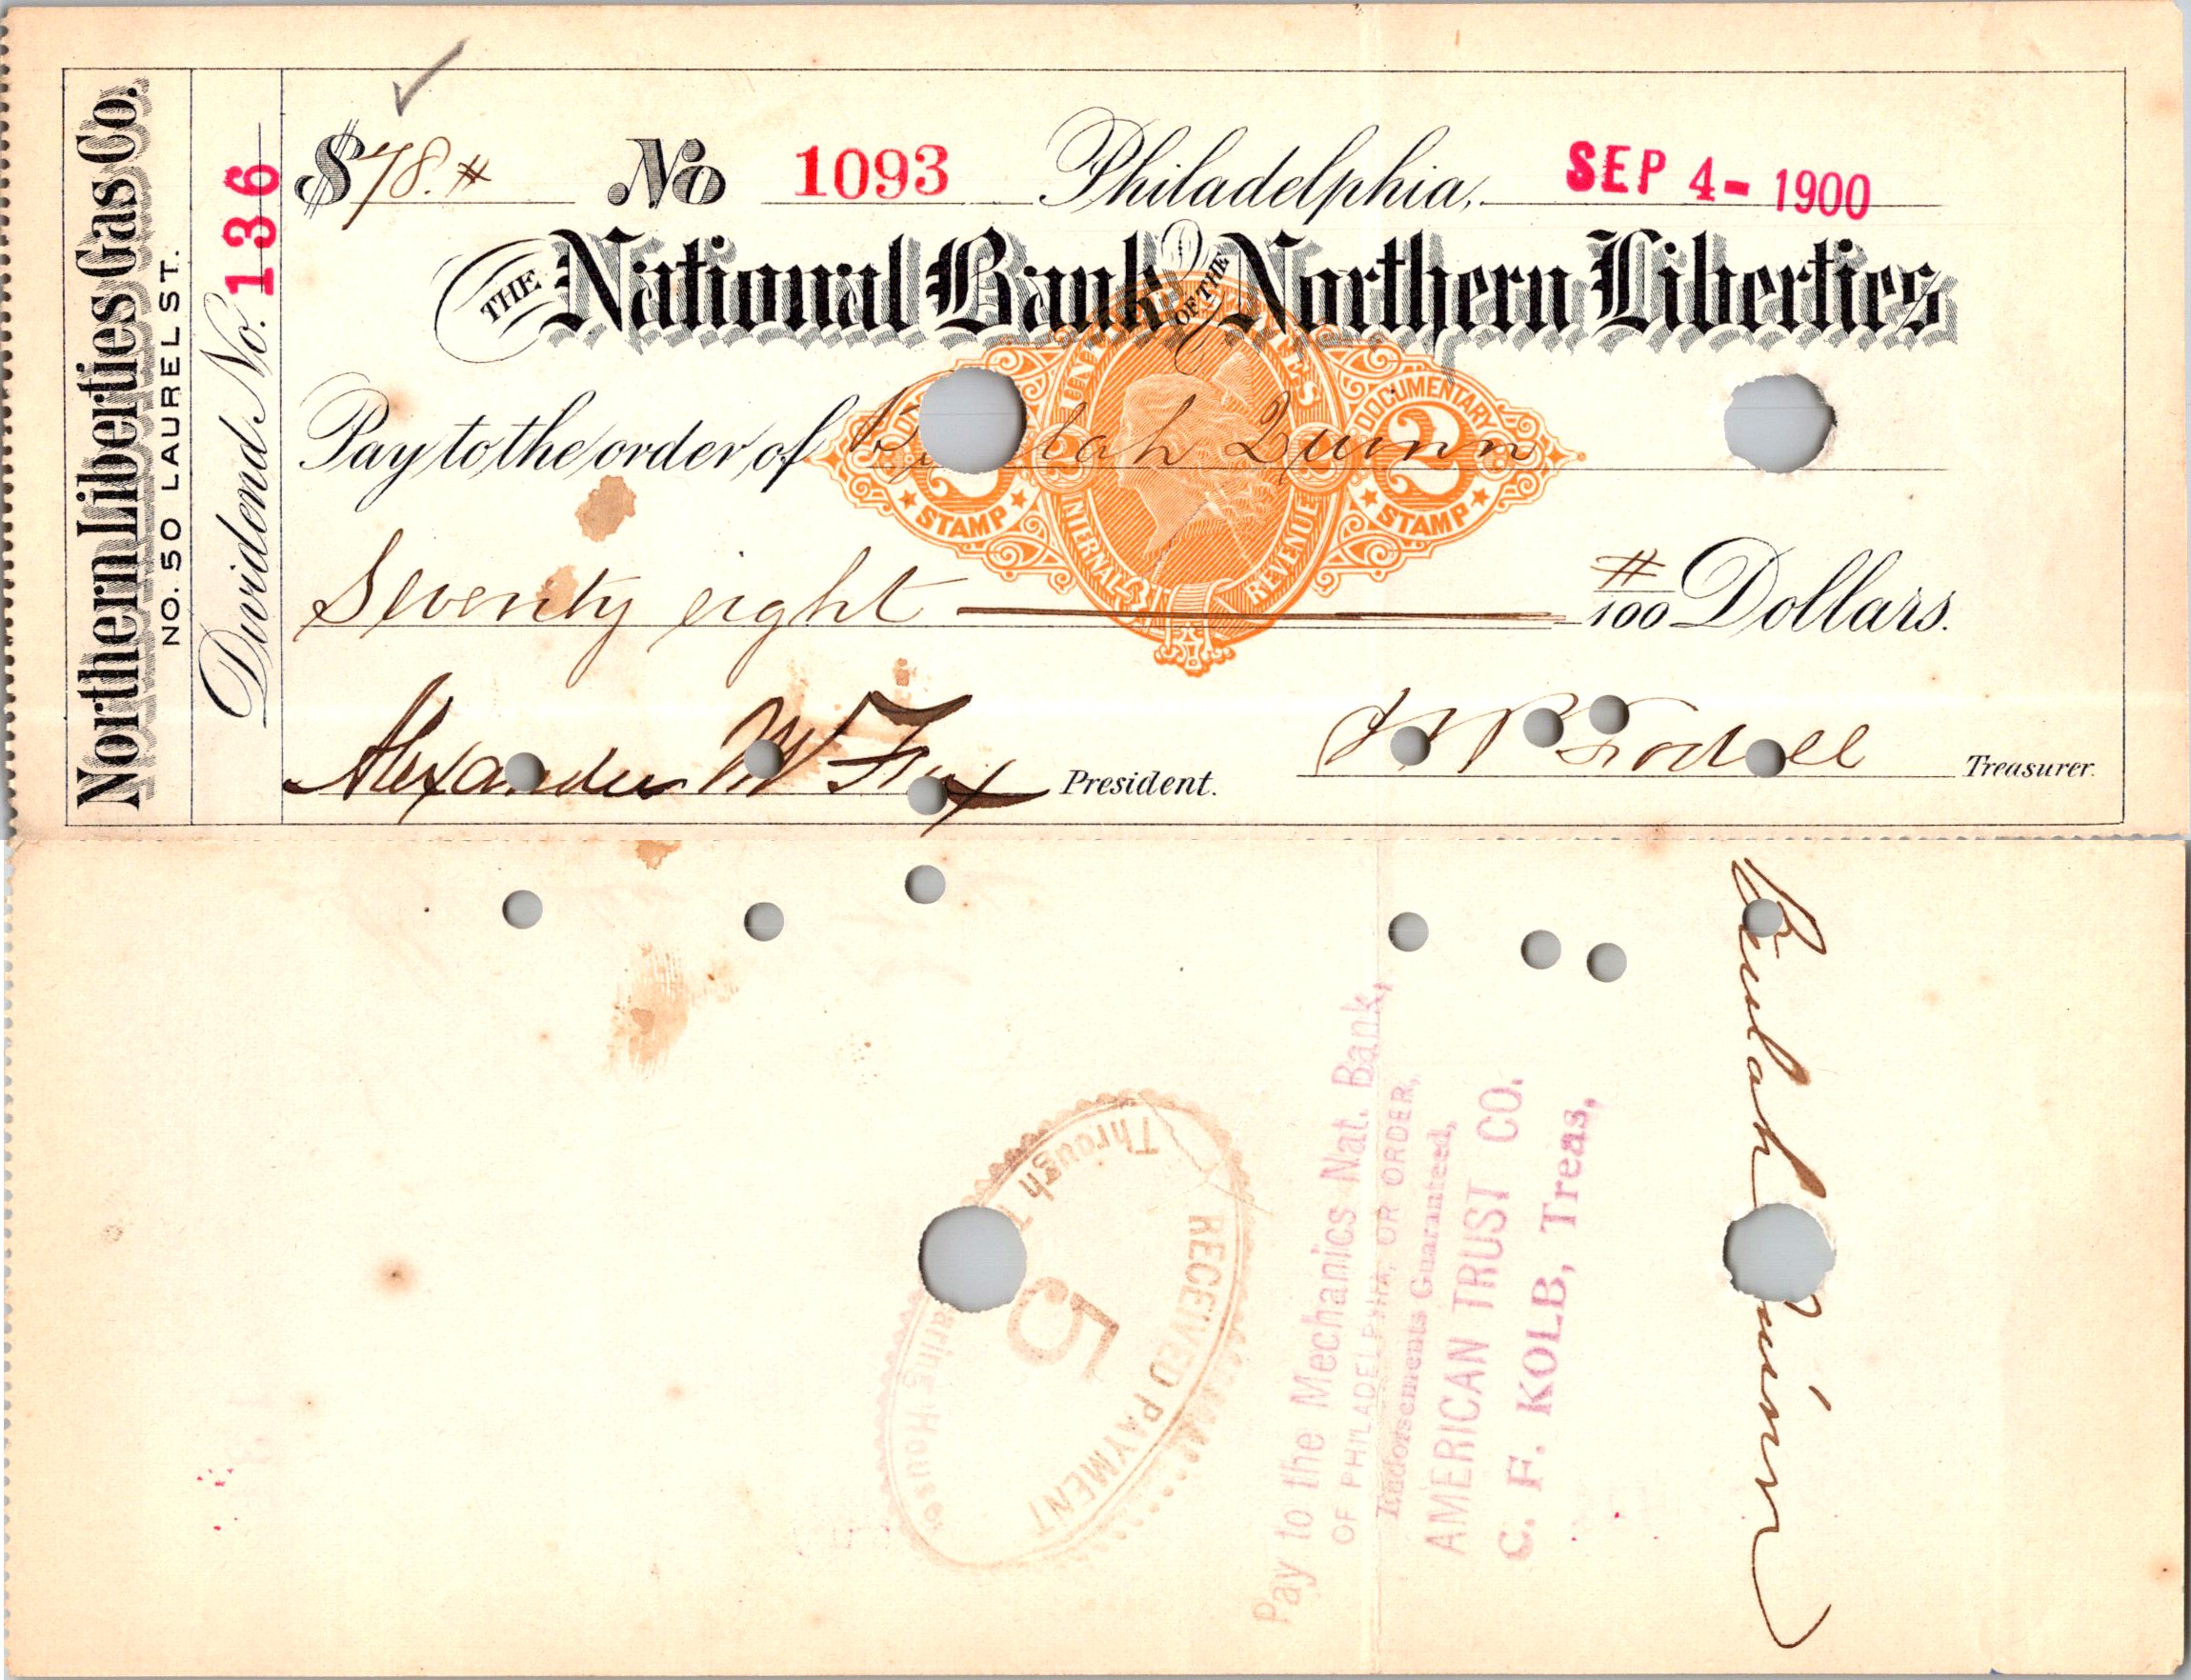 Northern Liberties Gas Co.
NO. 50 LAUREL ST.
Dividend No. 136
$78.# No 1093 Philadelphia, SEP 4- 1900
THE National Bank OF THE Northern Liberties
Pay to the order of Quinn
UNITED STATES
DOCUMENTARY
2 2
STAMP STAMP
INTERNAL REVENUE
Seventy eight #/100 Dollars.
Alexander W Fox President.
Treasurer.
Beulah Quinn
RECEIVED PAYMENT
5
Through Clearing House
Pay to the Mechanics Nat. Bank,
OF PHILADELPHIA, OR ORDER,
Endorsements Guaranteed,
AMERICAN TRUST CO.
C. F. KOLB, Treas,